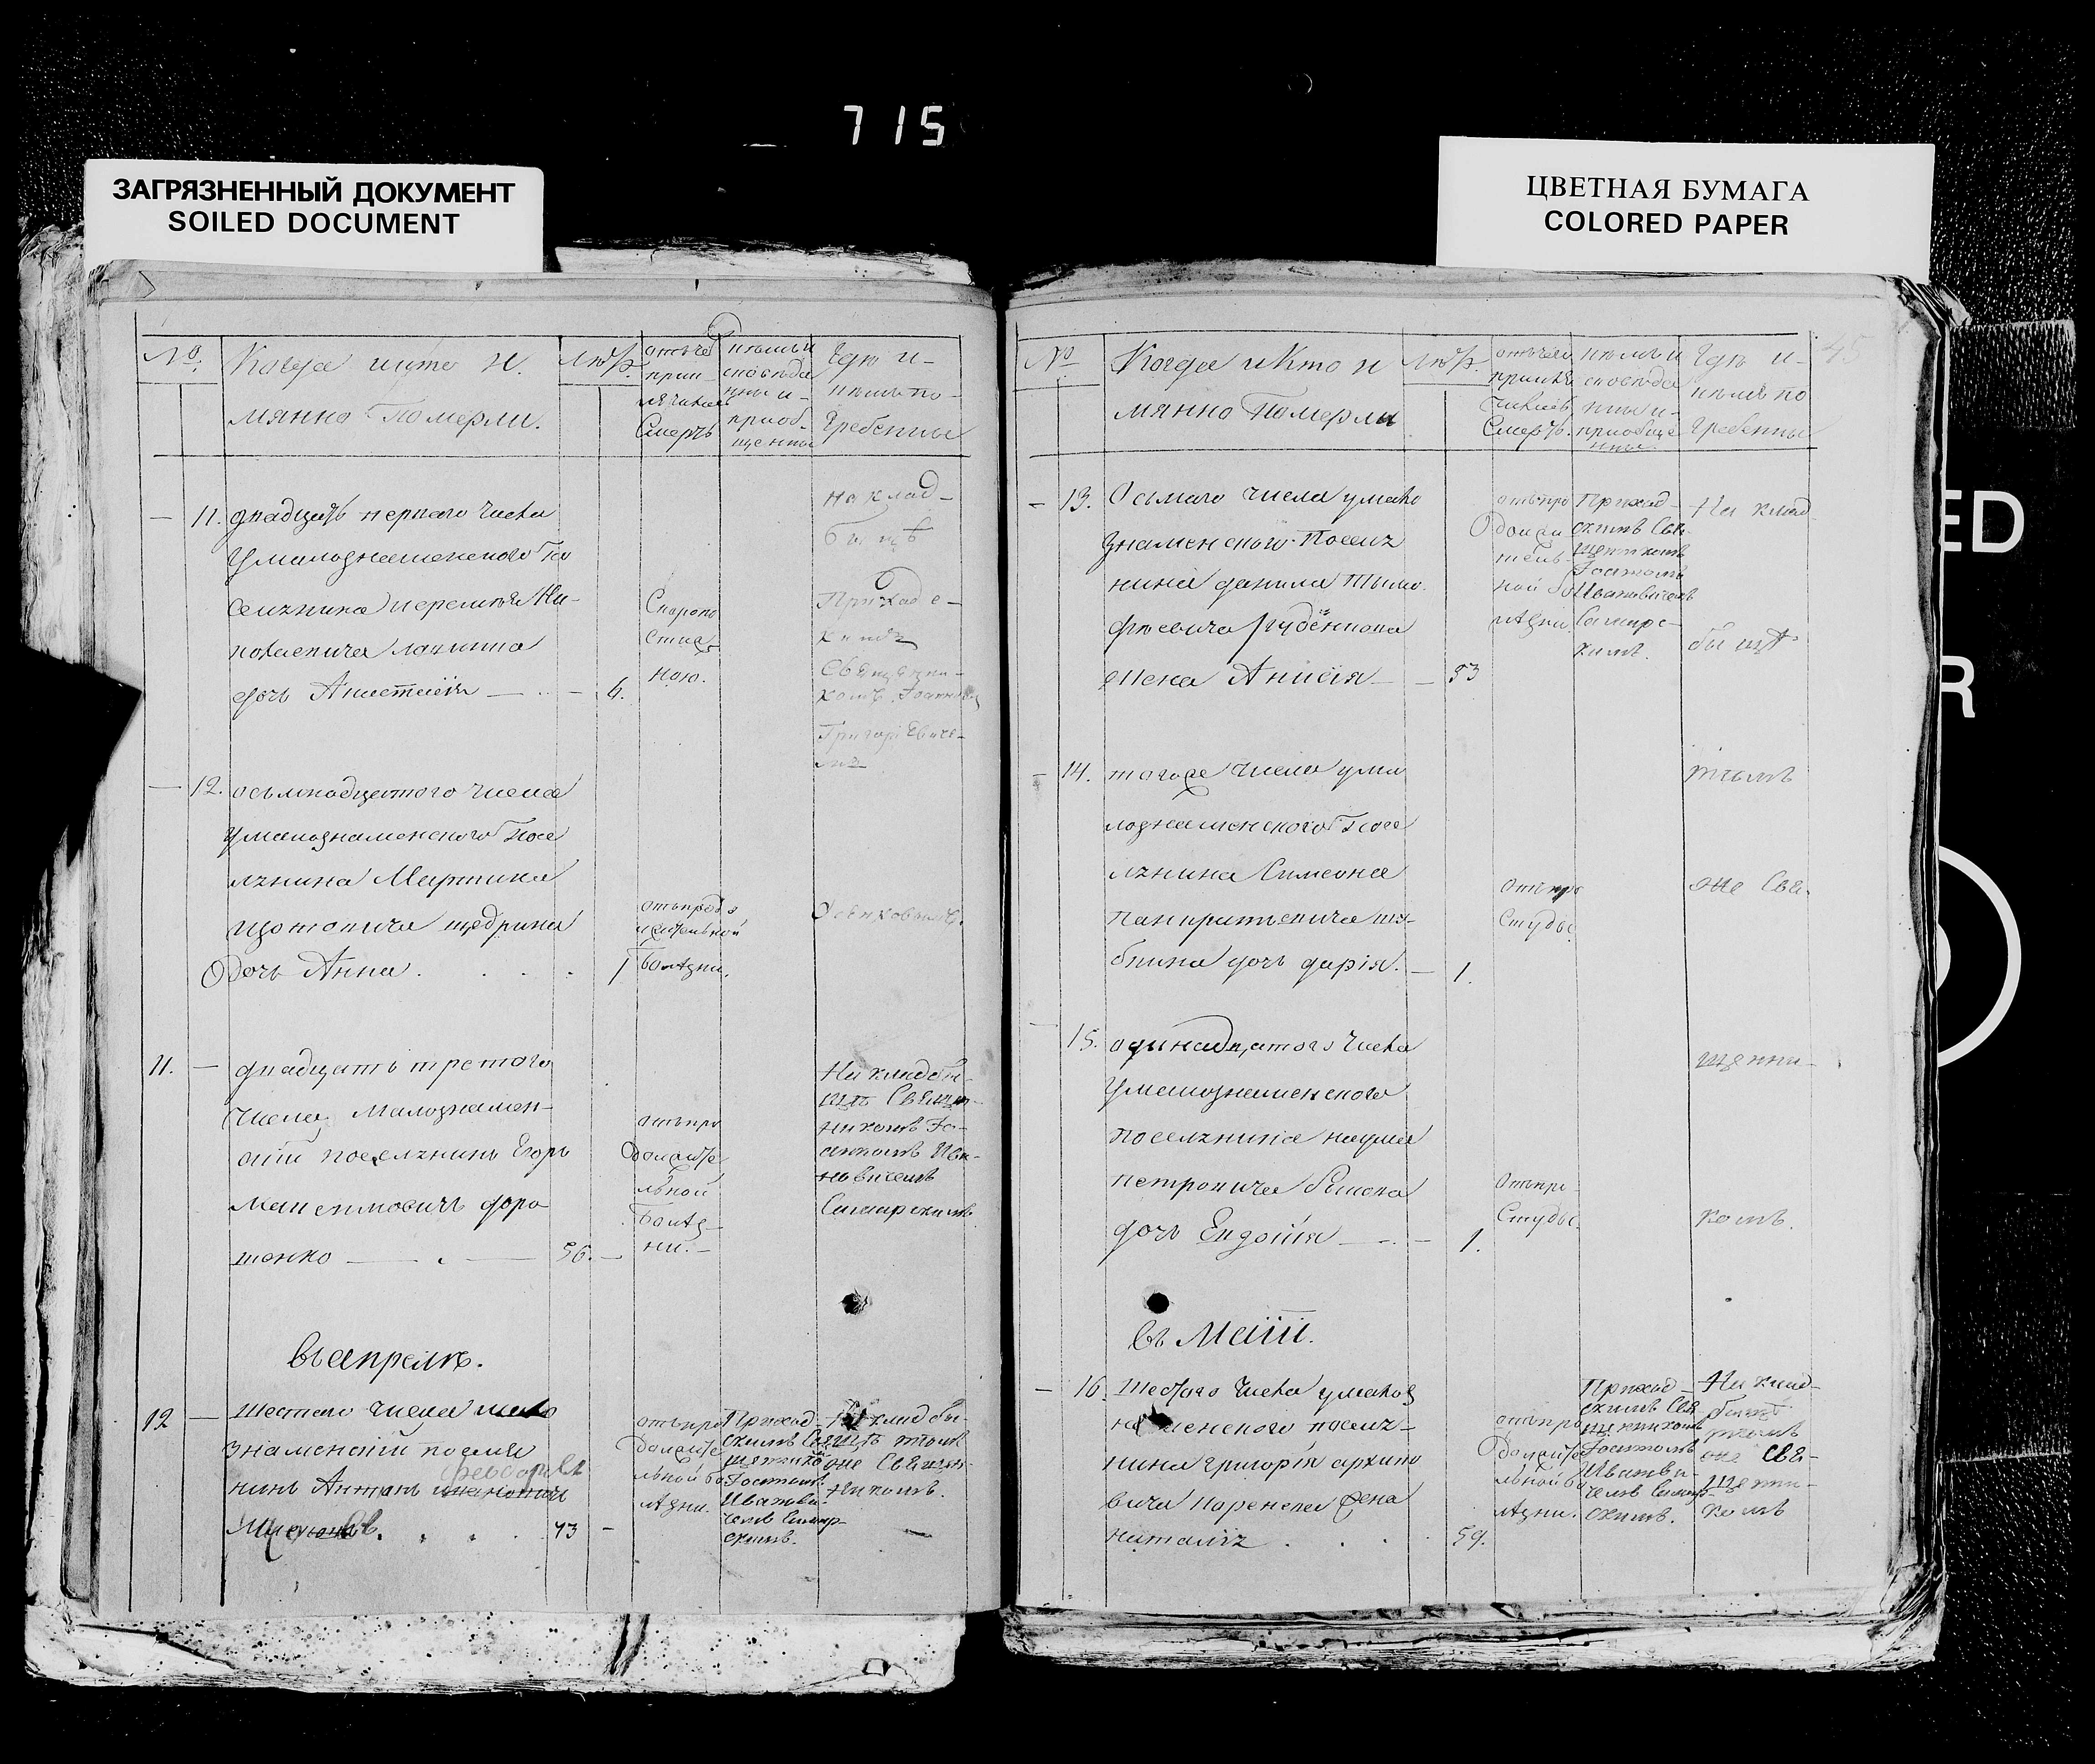 715
ЗАГРЯЗНЕННЫЙ ДОКУМЕНТ
SOILED DOCUMENT
ЦВЕТНАЯ БУМАГА
COLORED PAPER
№
Когда икто и
мянно Померли.
лѣт.
отъчего
приключилась
Смерть
кѣмъ и
сповѣда
ны и
приоб
щенны
Гдѣ и
кѣмъ по-
гребенны
11. двадцать перваго числа
Умалознаменского По
селянина
дочь Анастасія — 6.
Скоропо
стиж
ною.
на клад-
би щѣ
Приход с-
кимъ
Священни-
комъ Іоанномъ
Григорьевиче-
мъ
12. осьмнадцатого числа
Умалознаменского Посе
лянина Мартина
щедрина
Дочь Анна . . . . 1
отъпродо
лжительной
болѣзни.
11. — двадцать третого
числа, Малознамен-
скій поселянинъ Егоръ
Максимовичъ доро
шенко — . — 56. —
отъпро
должите
льной
Болѣз-
ни. —
На кладби-
щѣ Священ-
никомъ Іо-
анномъ Ива-
новичемъ
Самарскимъ
въапрелѣ.
12 — шестаго числа мало
знаменскій поселя
нинъ Антонъ
43 —
отъпро
должите
льной бо
лѣзни.
Приход-
скимъ Свя
щеннико
Іоанномъ
Иванови-
чемъ Самар-
скимъ.
На кладби-
щѣ томъ
же Священ-
никомъ.
45
№
Когда иКто и
мянно Померли
лѣт.
отъчего
приклю
чилась
Смерть.
кѣмъ и
сповѣда
нны и-
приобще
нны
Гдѣ и-
кѣмъ по
гребенны
— 13. Осьмаго числа умало
знаменского Поселя
нина данила Тимо
фѣевича
жена Анисія — — 53
отъпро
должи
тель
ной бо
лѣзни
Приход-
скимъ Свя
щенникомъ
Іоанномъ
Ивановичемъ
Самарс-
кимъ.
На клад
би щѣ
— 14. тогоже числа ума
лознаменского Посе
лянина Симеона
Панкратьевича
дочь дарія. — 1.
отъпро
Студы.
тѣмъ
же Свя-
15. одинадцатого числа
Умалознаменского
поселянина наума
петровича
дочь Евдокія — . — 1.
отъпро
Студы
щенни-
комъ.
въ Маіи.
— 16. Шестого числа умалоз
наменского поселя-
нина григорія архипо
вича жена
наталія . . . . 59.
отъпро
должите
льной бо
лѣзни.
Приход-
скимъ Свя
щенникомъ
Іоанномъ
Иванови-
чемъ Самар-
скимъ.
На клад-
бищѣ
тѣмъ
же Свя-
щенни-
комъ
ED
R